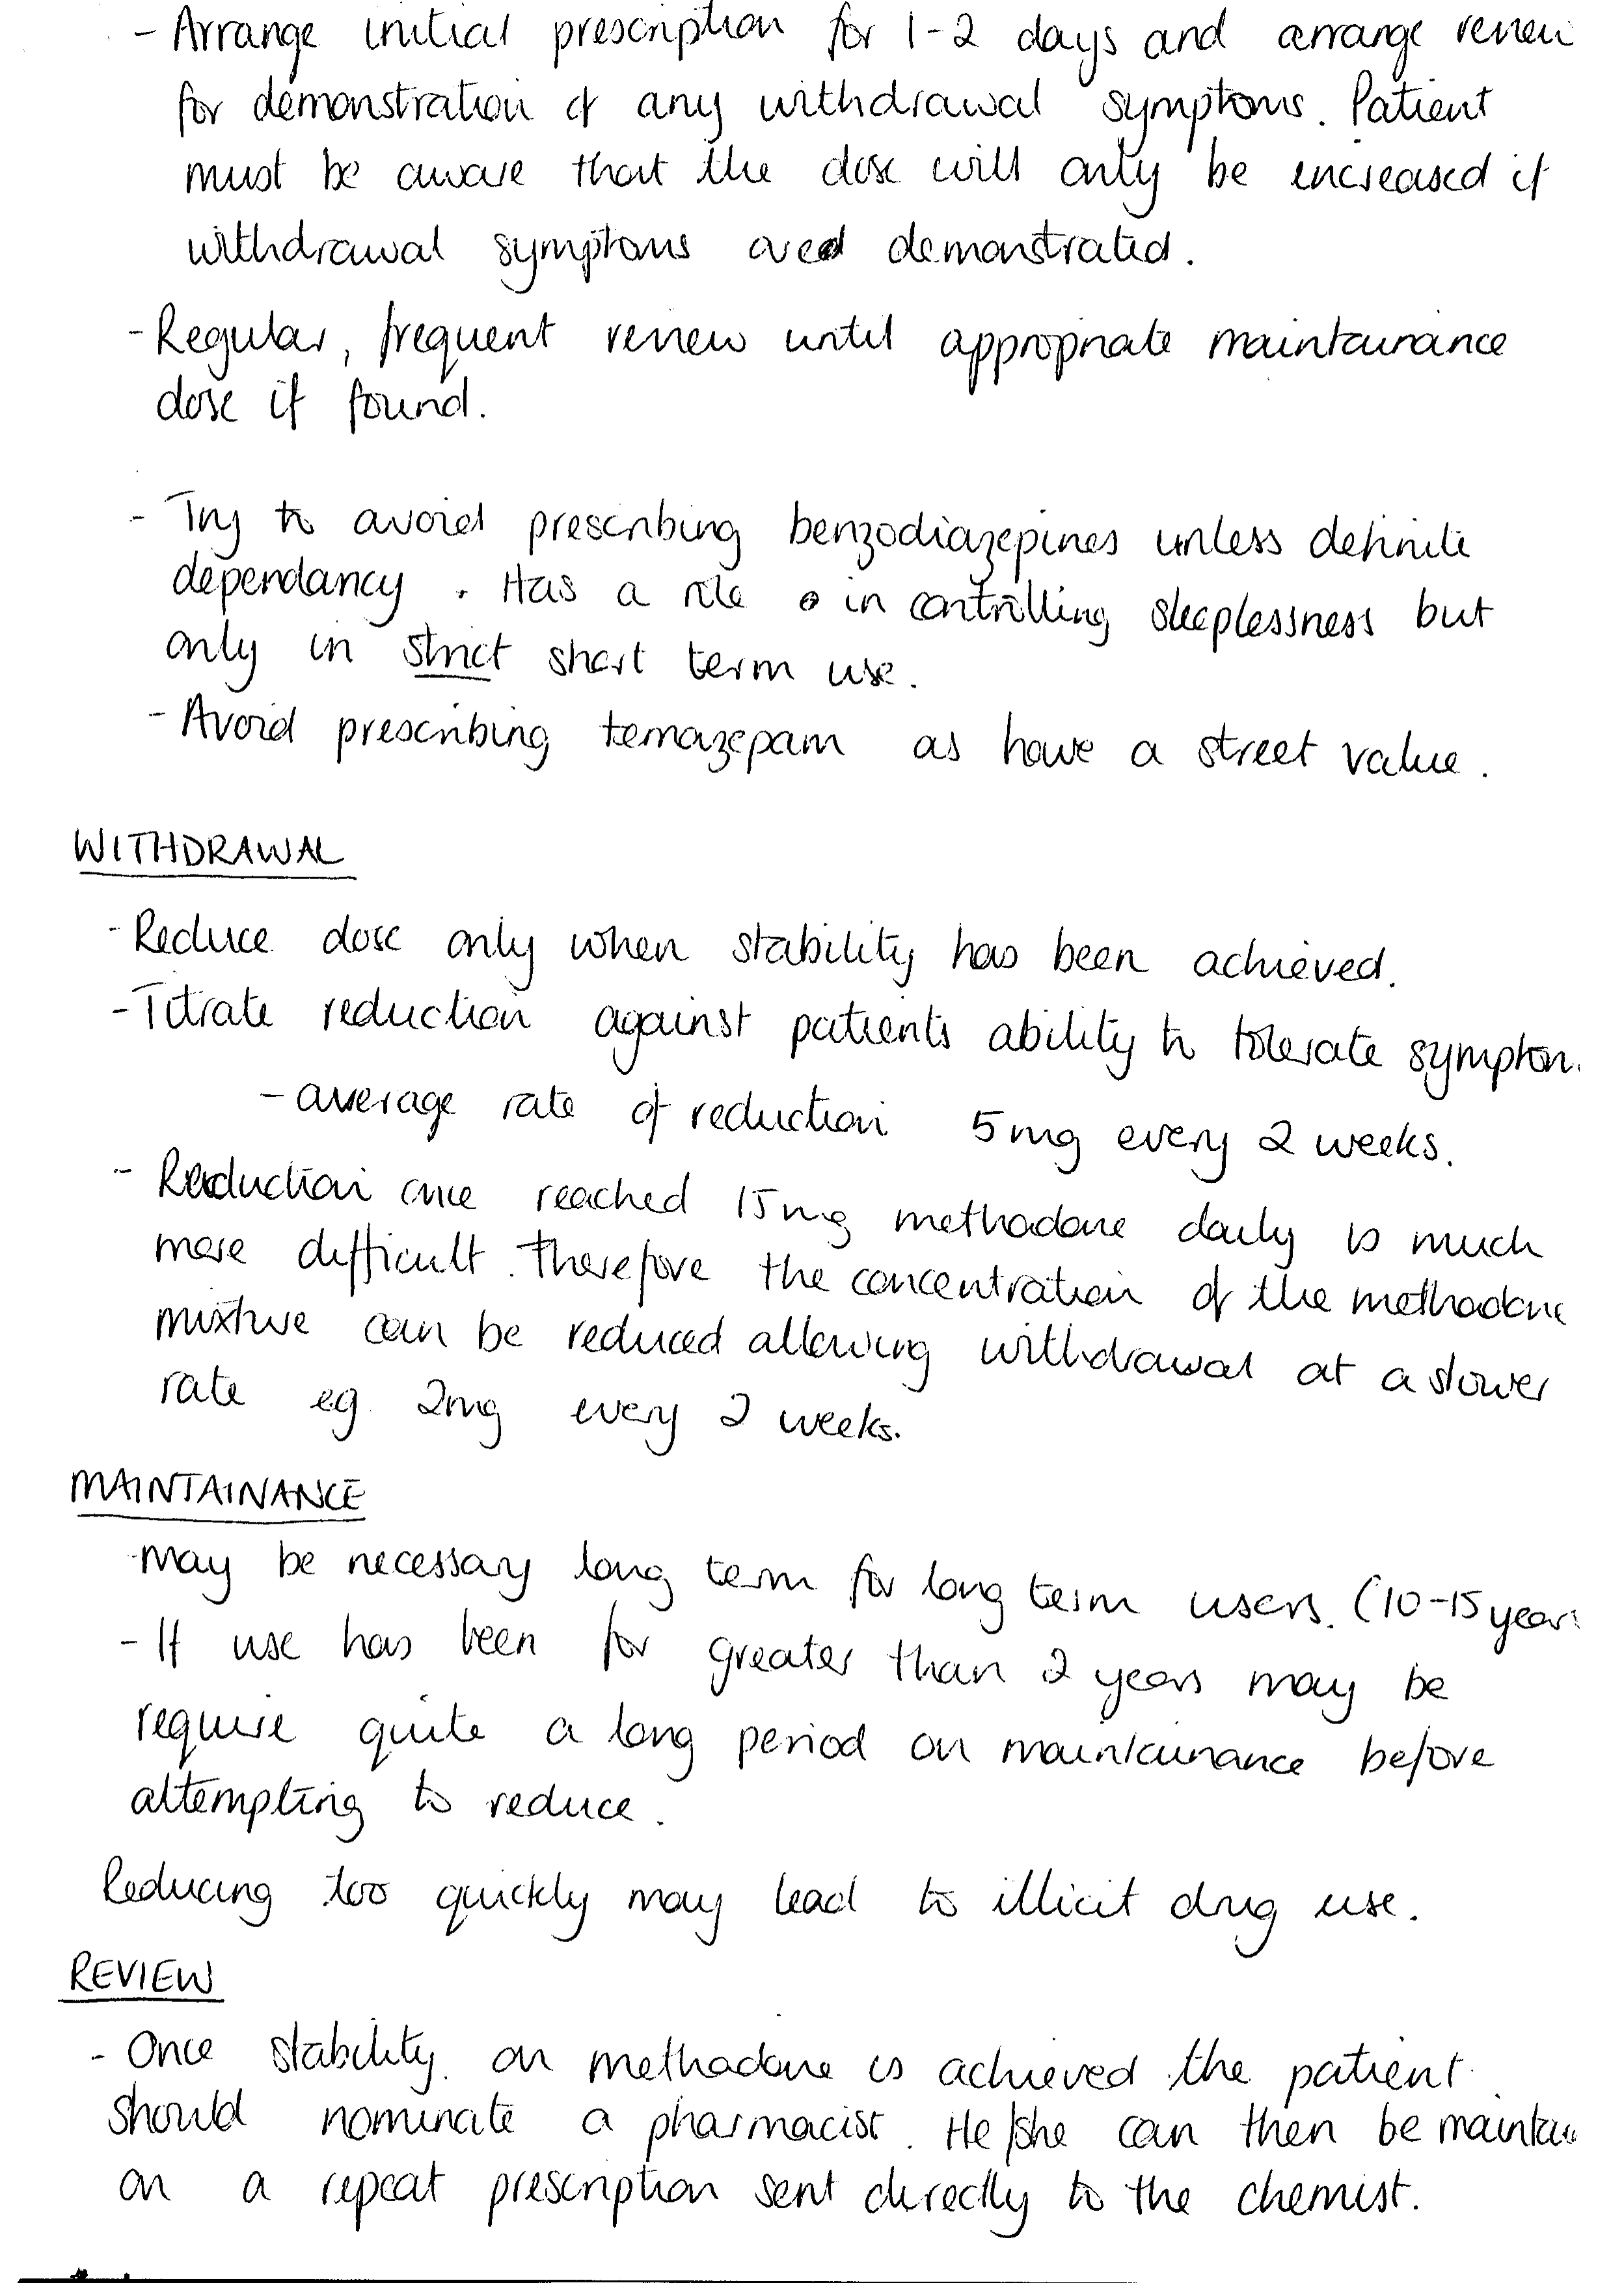 - Arrange initial prescription for 1-2 days and arrange review
for demonstration of any withdrawal symptoms. Patient
must be aware that the dose will only be increased if
withdrawal symptoms are demonstrated.
- Regular, frequent review until appropriate maintainance
dose if found.
- Try to avoid prescribing benzodiazepines unless definite
dependancy. Has a role in controlling sleeplessness but
only in strict short term use.
- Avoid prescribing temazepam as have a street value.
WITHDRAWAL
- Reduce dose only when stability has been achieved.
- Titrate reduction against patients ability to tolerate symptom
- average rate of reduction 5mg every 2 weeks.
- Reduction once reached 15mg methadone daily is much
more difficult. Therefore the concentration of the methadone
mixture can be reduced allowing withdrawal at a slower
rate eg. 2mg every 2 weeks.
MAINTAINANCE
- May be necessary long term for long term users. (10-15 years
- If use has been for greater than 2 years may be
require quite a long period on maintainance before
attempting to reduce.
Reducing too quickly may lead to illicit drug use.
REVIEW
- Once stability on methadone is achieved the patient
should nominate a pharmacist. He/she can then be maintai
on a repeat prescription sent directly to the chemist.